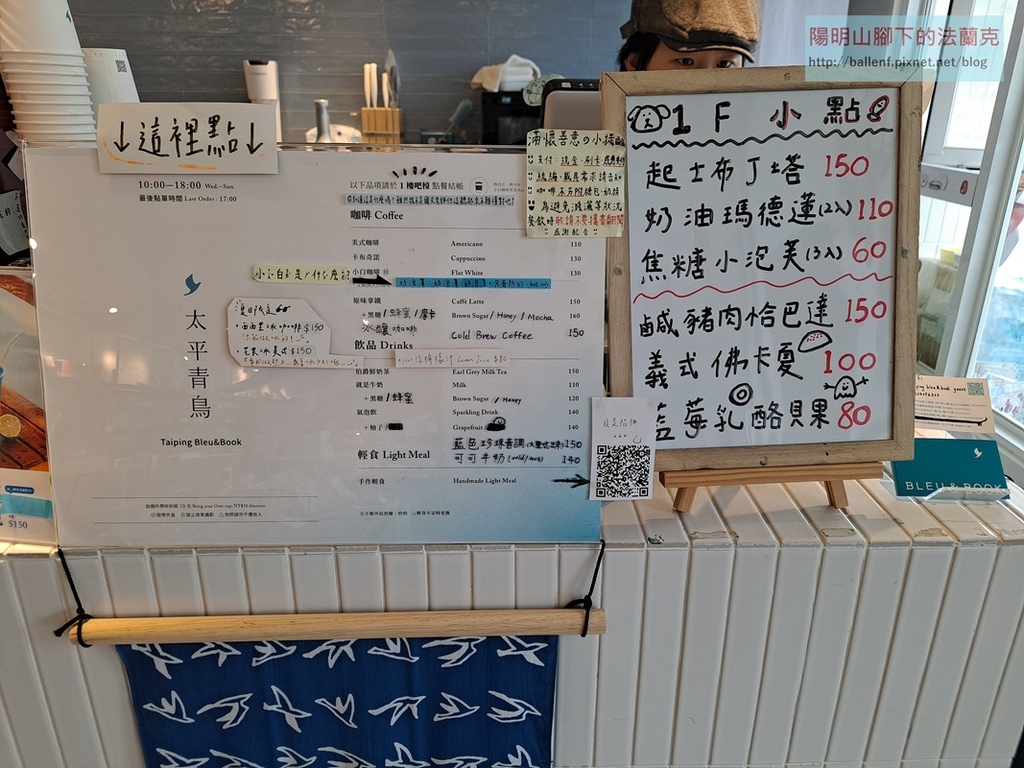 陽明山腳下的法蘭克
http://ballenf.pixnet.net/blog
↓這裡點↓
10:00—18:00 Wed.—Sun.
最後點單時間 Last Order : 17:00
太平青鳥
Taiping Bleu&Book
以下品項請於1樓吧檯點餐結帳
咖啡 Coffee
美式咖啡 Americano 110
卡布奇諾 Cappuccino 130
小白咖啡 Flat White 130
原味拿鐵 Caffè Latte 150
+黑糖/蜂蜜/摩卡 Brown Sugar / Honey / Mocha 160
冰釀咖啡 Cold Brew Coffee 150
飲品 Drinks
Lemon Juice $80
伯爵鮮奶茶 Earl Grey Milk Tea 150
就是牛奶 Milk 110
+黑糖/蜂蜜 Brown Sugar / Honey 120
氣泡飲 Sparkling Drink 140
+柚子 Grapefruit 140
藍色珍珠香調 150
可可牛奶 (cold/hot) 140
輕食 Light Meal
手作輕食 Handmade Light Meal
小白是什麼
夏日限定
西西里冰咖啡 $150
花果冰美式 $150
滿懷善意の小提醒
支付:現金、刷卡
為避免潑灑等狀況
餐飲時敬請不要攜書翻閱
感謝配合
1F 小點
起士布丁塔 150
奶油瑪德蓮(2入) 110
焦糖小泡芙(3入) 60
鹹豬肉恰巴達 150
義式佛卡夏 100
藍莓乳酪貝果 80
BLEU & BOOK
$150